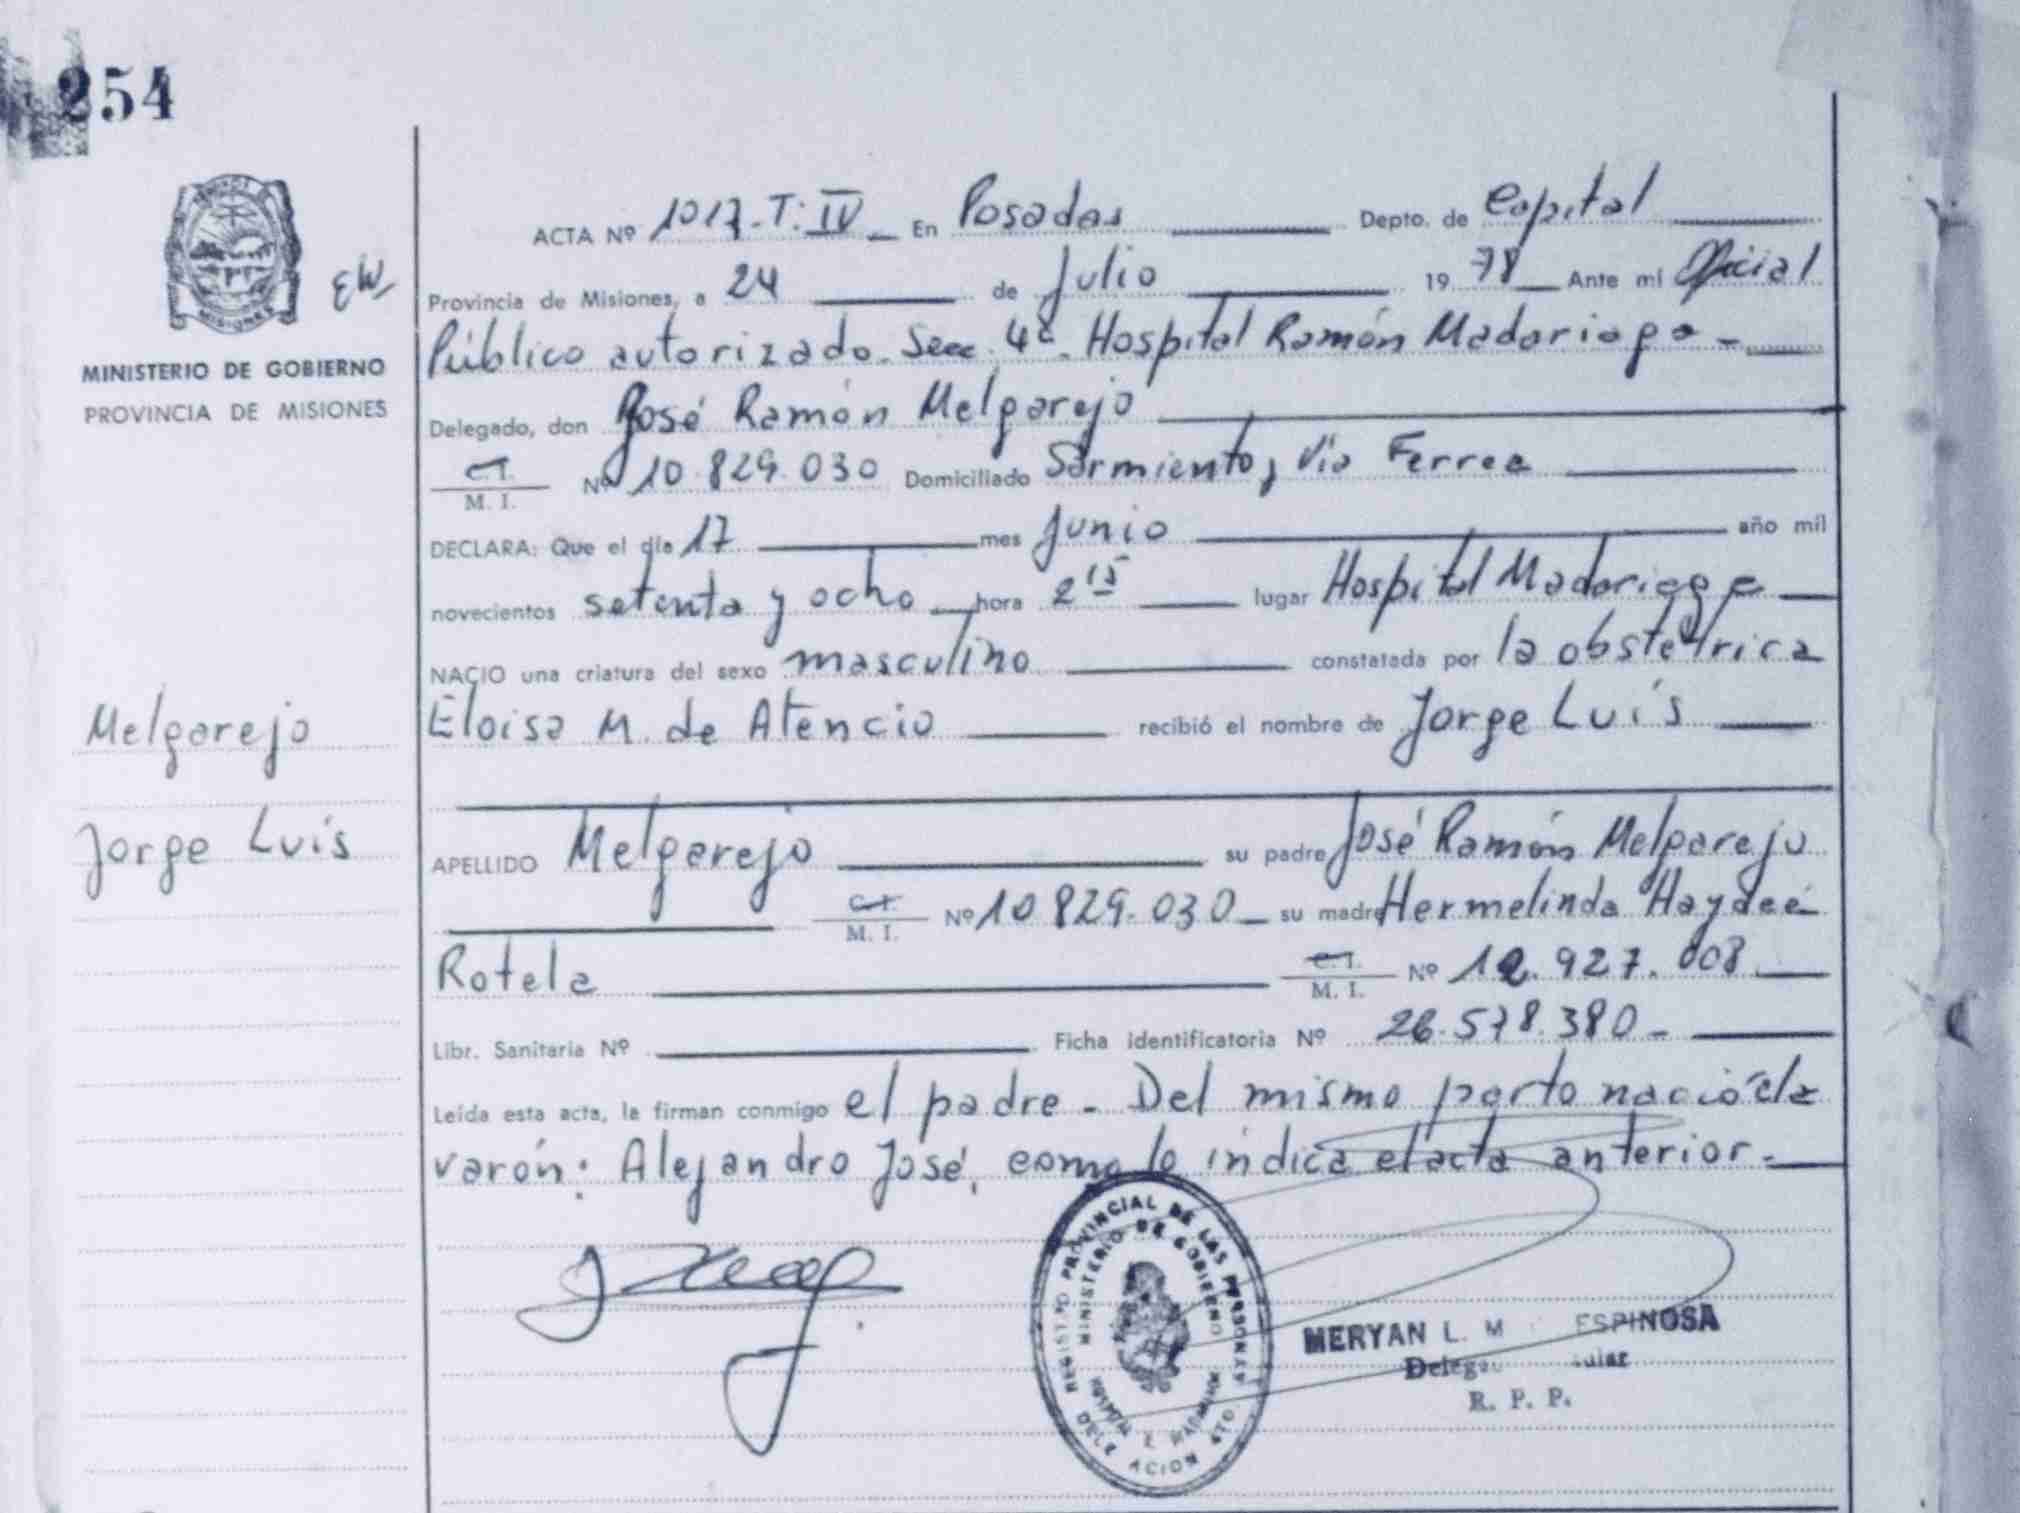 254
MISIONES
MINISTERIO DE GOBIERNO
PROVINCIA DE MISIONES
Melgarejo
Jorge Luís
ACTA Nº 1017-T: IV En Posadas Depto. de Capital
Provincia de Misiones, a 24 de Julio 1978 Ante mí Oficial
Público autorizado. Secc. 4ª. Hospital Ramón Madariaga -
Delegado, don José Ramón Melgarejo
C.I. M. I. Nº 10.829.030 Domiciliado Sarmiento, Vía Ferrea
DECLARA: Que el día 17 mes Junio año mil
novecientos setenta y ocho hora 2 15 lugar Hospital Madariaga
NACIO una criatura del sexo masculino constatada por la obstétrica
Eloisa M. de Atencio recibió el nombre de Jorge Luís
APELLIDO Melgarejo su padre José Ramón Melgarejo
C.I. M. I. Nº 10.829.030 su madre Hermelinda Haydeé
Rotela C.I. M. I. Nº 12.927.008
Libr. Sanitaria Nº Ficha identificatoria Nº 26.578.380-
Leída esta acta, la firman conmigo el padre - Del mismo parto nació el
varón: Alejandro José, como lo indica el acta anterior.-
REGISTRO PROVINCIAL DE LAS PERSONAS
MINISTERIO DE GOBIERNO
MERYAN L. M ESPINOSA
R. P. P.